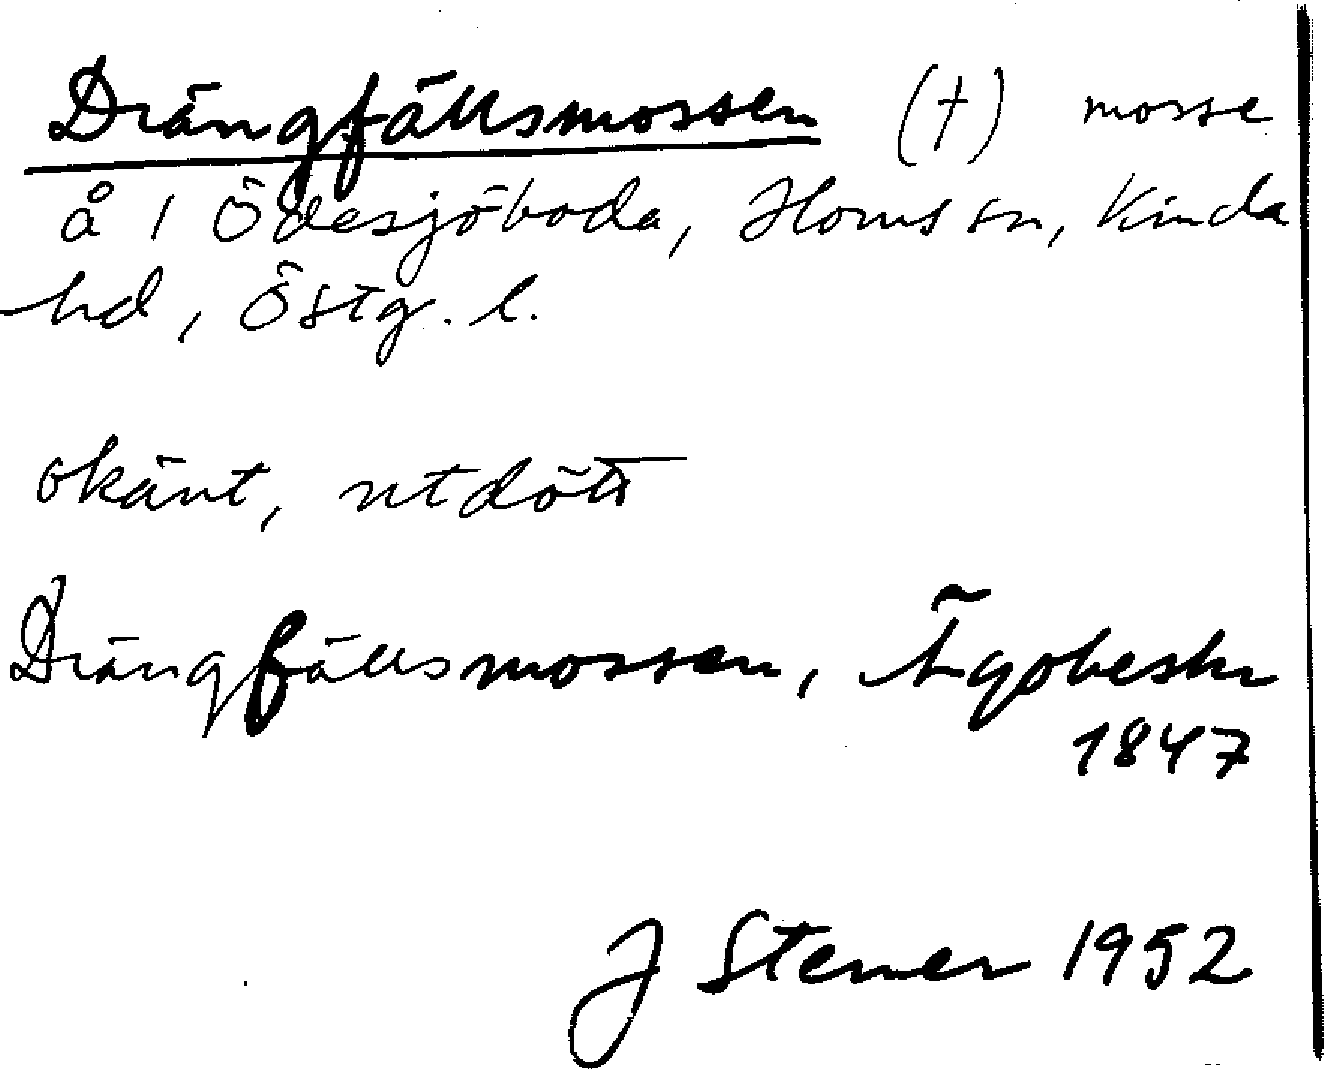 Drängfällsmossen (†) mosse
å 1 Ödesjöboda, Horns sn, Kinda
hd, Östg. l.
okänt, utdött
Drängfällsmossen, Ägobeskr
1847
J Stemer 1952